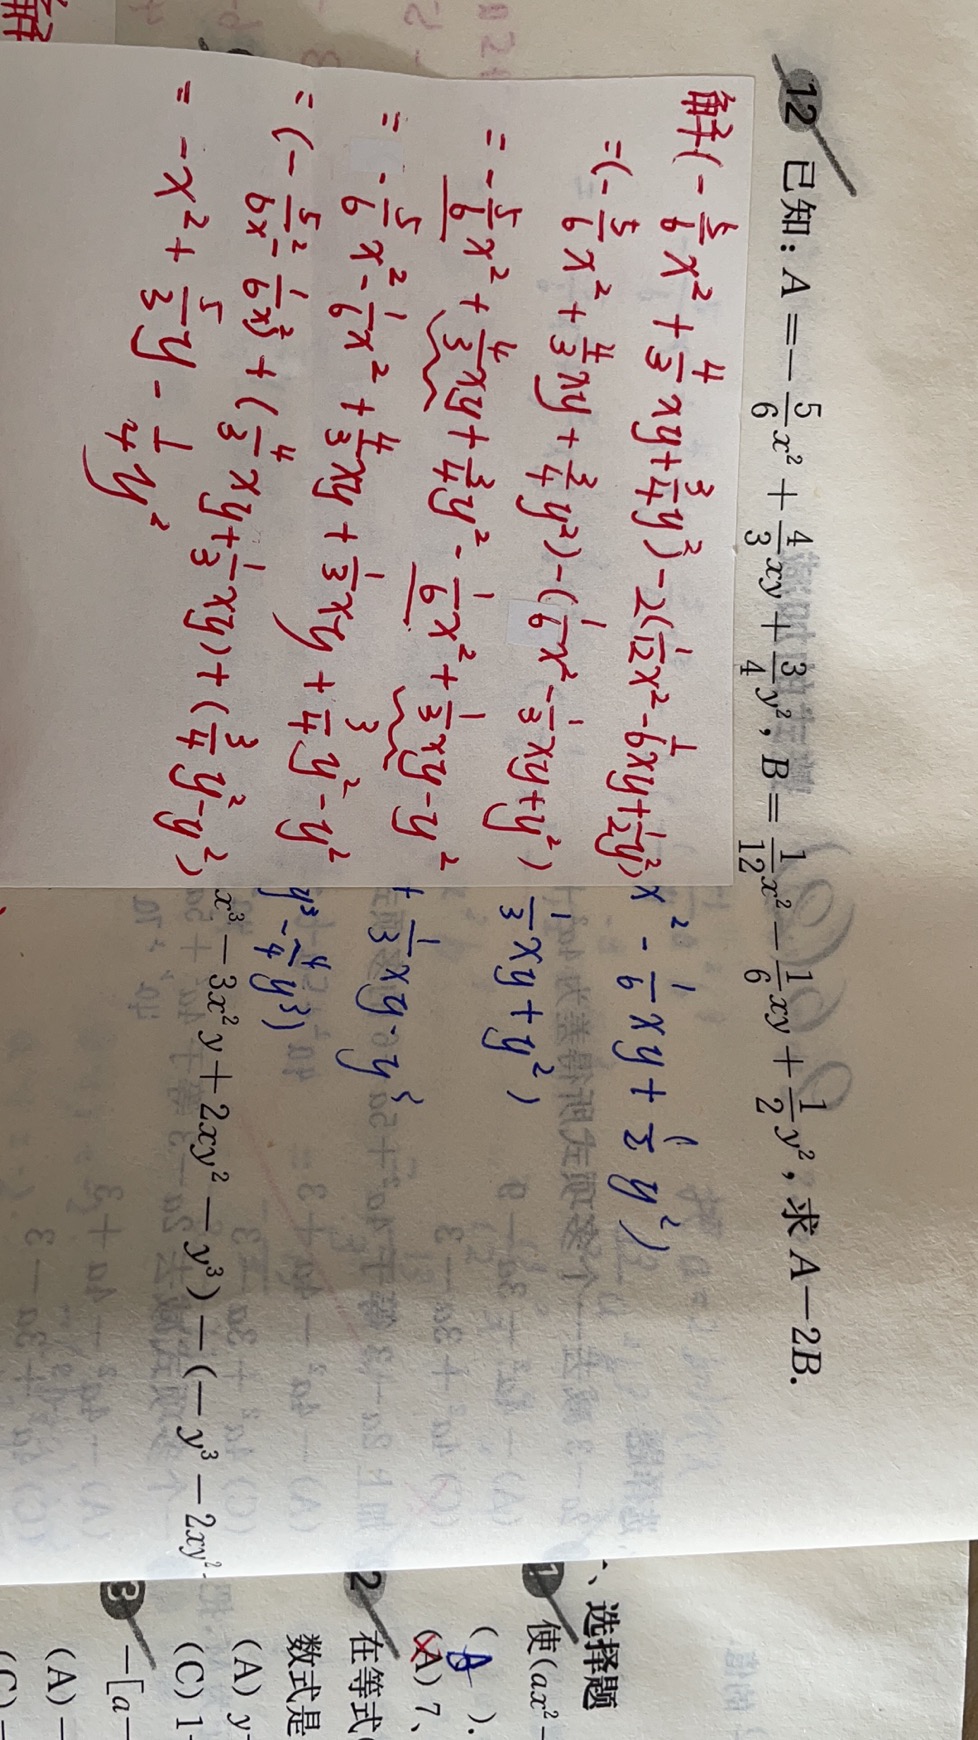 12 已知：A＝－5/6x²＋4/3xy＋3/4y²，B＝1/12x²－1/6xy＋1/2y²，求A－2B．
解(-5/6x²+4/3xy+3/4y²)-2(1/12x²-1/6xy+1/2y²)
=(-5/6x²+4/3xy+3/4y²)-(1/6x²-1/3xy+y²)
=-5/6x²+4/3xy+3/4y²-1/6x²+1/3xy-y²
=-5/6x²-1/6x²+4/3xy+1/3xy+3/4y²-y²
=(-5/6x²-1/6x²)+(4/3xy+1/3xy)+(3/4y²-y²)
=-x²+5/3y-1/4y²
解
x²-1/6xy+1/2y²)
1/3xy+y²)
+1/3xy-y³
y³-4/4y³)
x³－3x²y＋2xy²－y³)－(－y³－2xy²
一、选择题
1 使(ax²－
( A ).
(A) 7、
2 在等式(
数式是
(A) y－
(C) 1－
3 －[a－
(A) －
(C) －